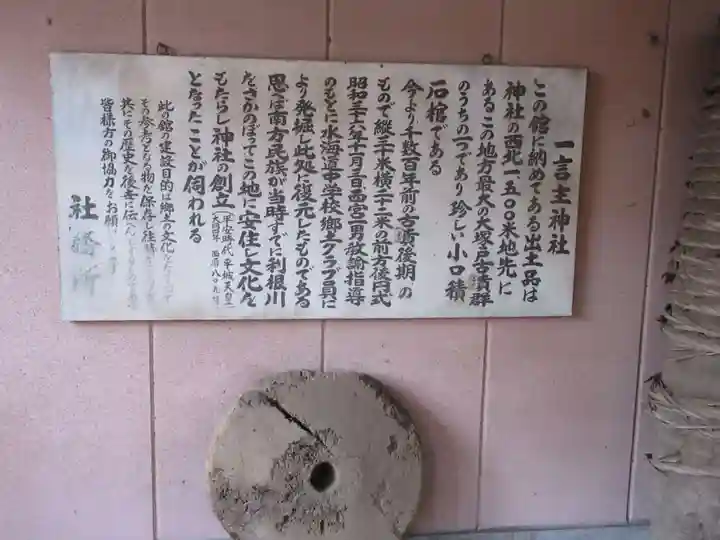 一言主神社
この館に納めてある出土品は
神社の西北一五〇〇米地先に
あるこの地方最大の大塚戸古墳群
のうちの一つであり珍しい小口積
石棺である
今より千数百年前の古墳後期の
もので縦三十米横二十二米の前方後円式
昭和三十六年十一月三日四宮二男教諭指導
のもとに水海道中学校郷土クラブ員に
より発掘し此処に復元したものである
思えば南方民族が当時すでに利根川
をさかのぼってこの地に安住し文化を
もたらし神社の創立(平安時代平城天皇 大同四年 西暦八〇九年)
となったことが伺われる
此の館の建設目的は郷土の文化
その参考となる物を保存し往時
共にその歴史を後世に伝へ
皆様方の御協力をお願い
社務所